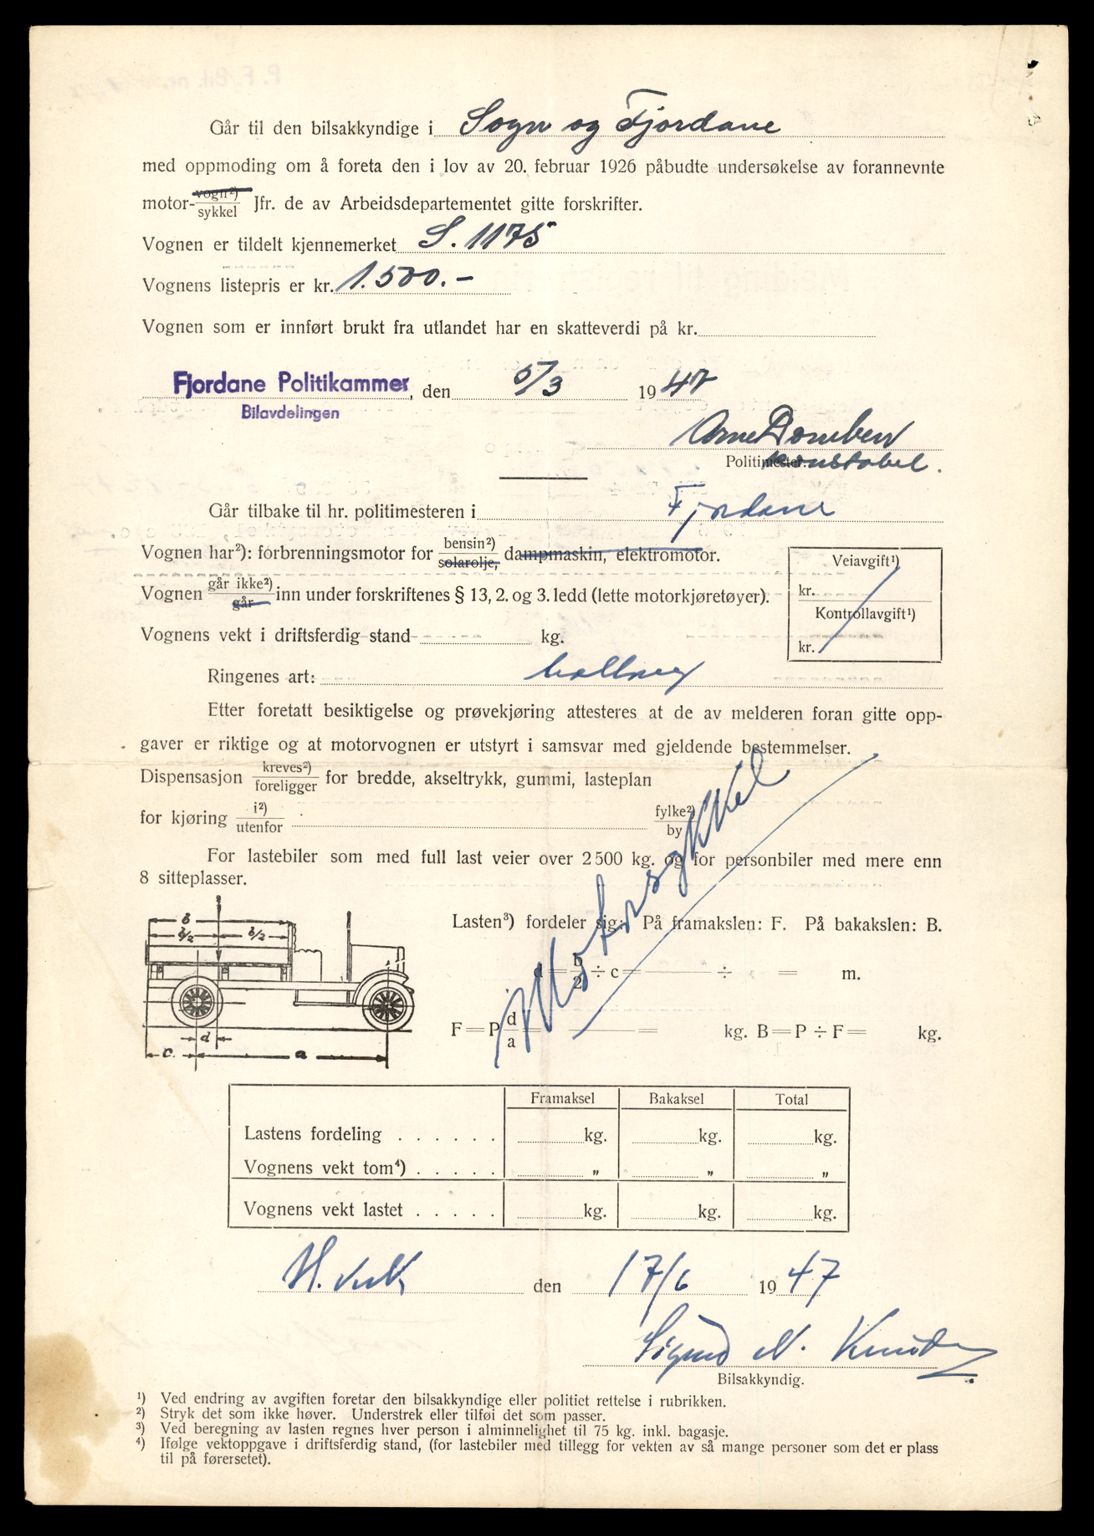 Går til den bilsakkyndige i Sogn og Fjordane
med oppmoding om å foreta den i lov av 20. februar 1926 påbudte undersøkelse av forannevnte
motor-vogn²) sykkel Jfr. de av Arbeidsdepartementet gitte forskrifter.
Vognen er tildelt kjennemerket S. 1175
Vognens listepris er kr. 1.500.-
Vognen som er innført brukt fra utlandet har en skatteverdi på kr.
Fjordane Politikammer, den 5/3 1947
Bilavdelingen
Arne Domben
Politimester. konstabel.
Går tilbake til hr. politimesteren i Fjordane
Vognen har²): forbrenningsmotor for bensin²) solarolje, dampmaskin, elektromotor.
Vognen går ikke²) går inn under forskriftenes § 13, 2. og 3. ledd (lette motorkjøretøyer).
Veiavgift¹)
kr.
Kontrollavgift¹)
kr.
Vognens vekt i driftsferdig stand kg.
Ringenes art:
Etter foretatt besiktigelse og prøvekjøring attesteres at de av melderen foran gitte opp-
gaver er riktige og at motorvognen er utstyrt i samsvar med gjeldende bestemmelser.
Dispensasjon kreves²) foreligger for bredde, akseltrykk, gummi, lasteplan
for kjøring i²) utenfor fylke²) by
For lastebiler som med full last veier over 2500 kg. og for personbiler med mere enn
8 sitteplasser.
Motorsykkel
Lasten³) fordeler sig: På framakslen: F. På bakakslen: B.
d = b/2 ÷ c = ÷ = m.
F = P d/a = = kg. B = P ÷ F = kg.
B
B/2 B/2
d
c. a
Framaksel Bakaksel Total
Lastens fordeling . . . . . . kg. kg. kg.
Vognens vekt tom⁴) . . . . . „ „ „
Vognens vekt lastet . . . . . kg. kg. kg.
den 17/6 1947
Sigurd N.
Bilsakkyndig.
¹) Ved endring av avgiften foretar den bilsakkyndige eller politiet rettelse i rubrikken.
²) Stryk det som ikke høver. Understrek eller tilføi det som passer.
³) Ved beregning av lasten regnes hver person i alminnelighet til 75 kg. inkl. bagasje.
⁴) Ifølge vektoppgave i driftsferdig stand, (for lastebiler med tillegg for vekten av så mange personer som det er plass
til på førersetet).